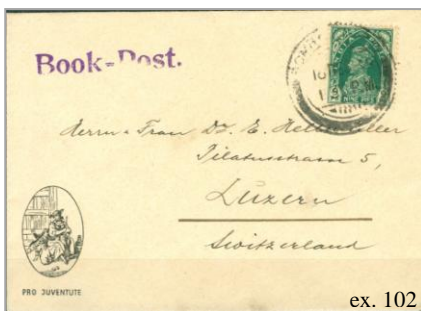 Book-Post.
Herrn & Frau Dr. E.
Pilatusstrasse 5,
Luzern
Switzerland
PRO JUVENTUTE
ex. 102